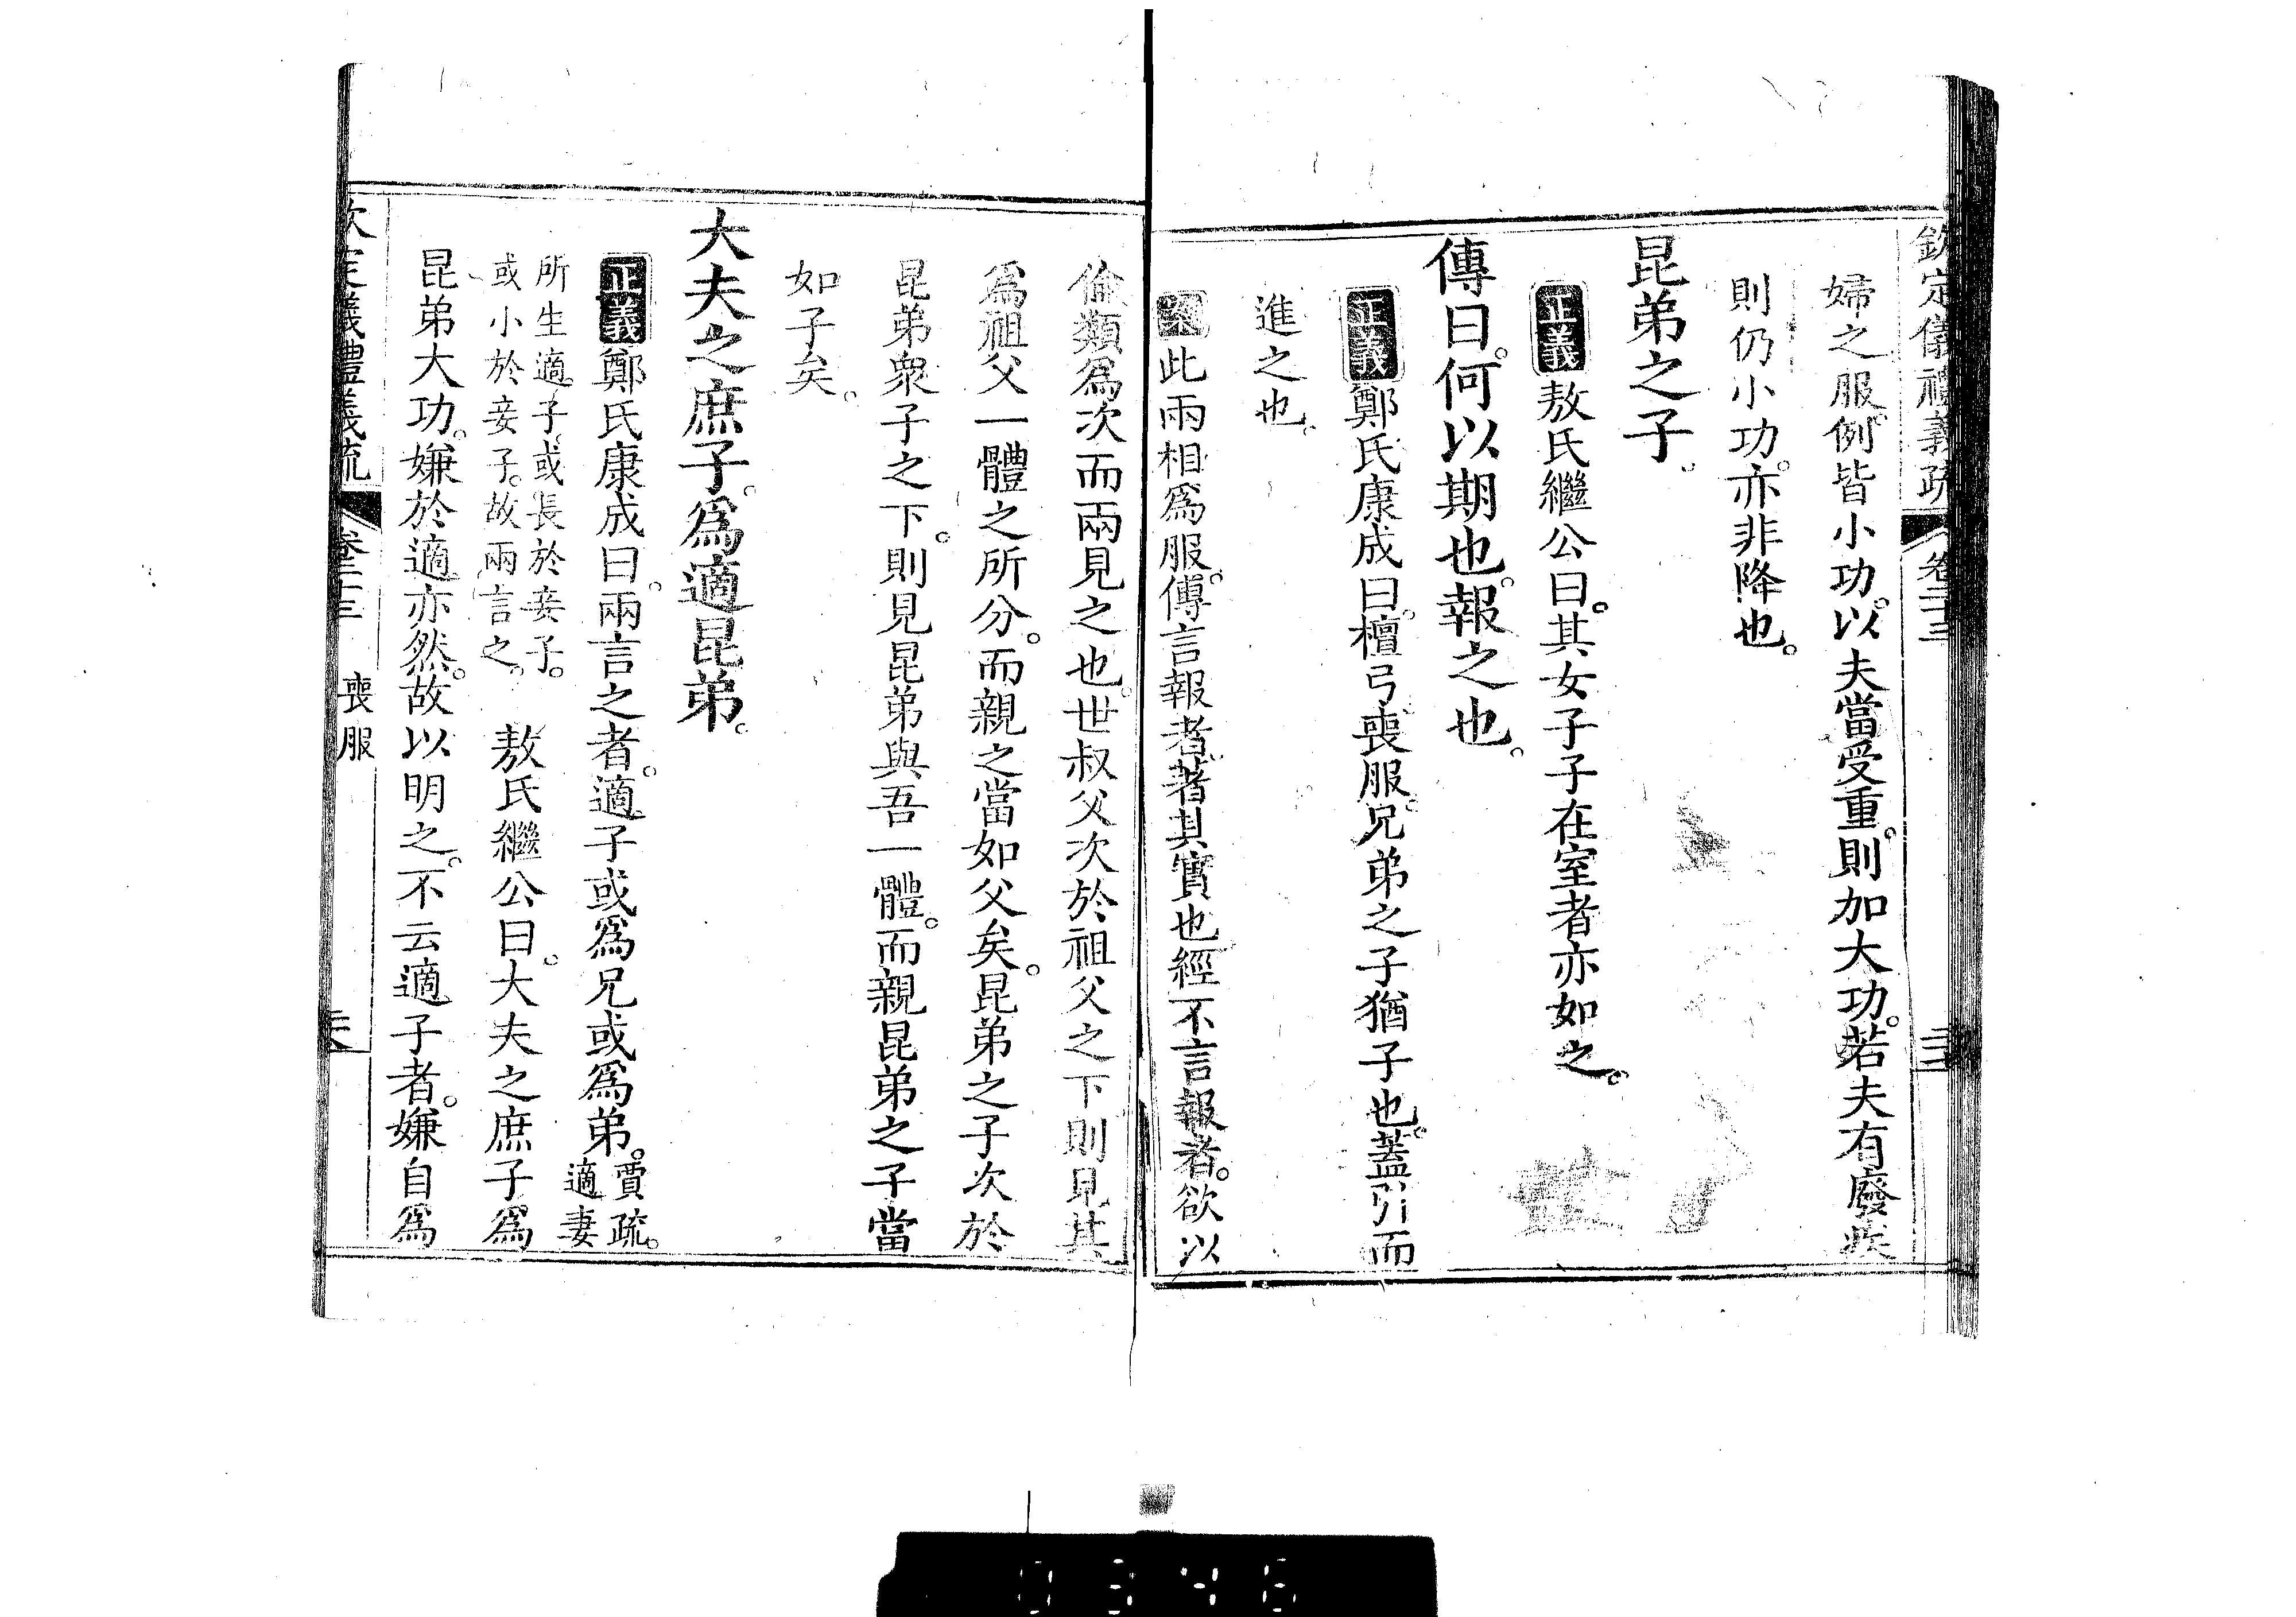 欽定儀禮義疏 卷二十三
婦之服。例皆小功。以夫當受重。則加大功。若夫有廢疾
則仍小功。亦非降也。
昆弟之子。
正義 敖氏繼公曰。其女子子在室者亦如之。
傳曰。何以期也。報之也。
正義 鄭氏康成曰。檀弓喪服。兄弟之子猶子也。蓋引而
進之也。
案 此兩相爲服。傳言報者。著其實也。經不言報者。欲以
倫類爲次而兩見之也。世叔父次於祖父之下則見其
爲祖父一體之所分。而親之當如父矣。昆弟之子次於
昆弟衆子之下。則見昆弟與吾一體。而親昆弟之子當
如子矣。
大夫之庶子。爲適昆弟。
正義 鄭氏康成曰。兩言之者。適子或爲兄或爲弟。賈疏。
適妻
所生適子。或長於妾子。
或小於妾子。故兩言之。 敖氏繼公曰。大夫之庶子。爲
昆弟大功。嫌於適亦然。故以明之。不云適子者。嫌自爲
欽定儀禮義疏 卷二十三 喪服
0346